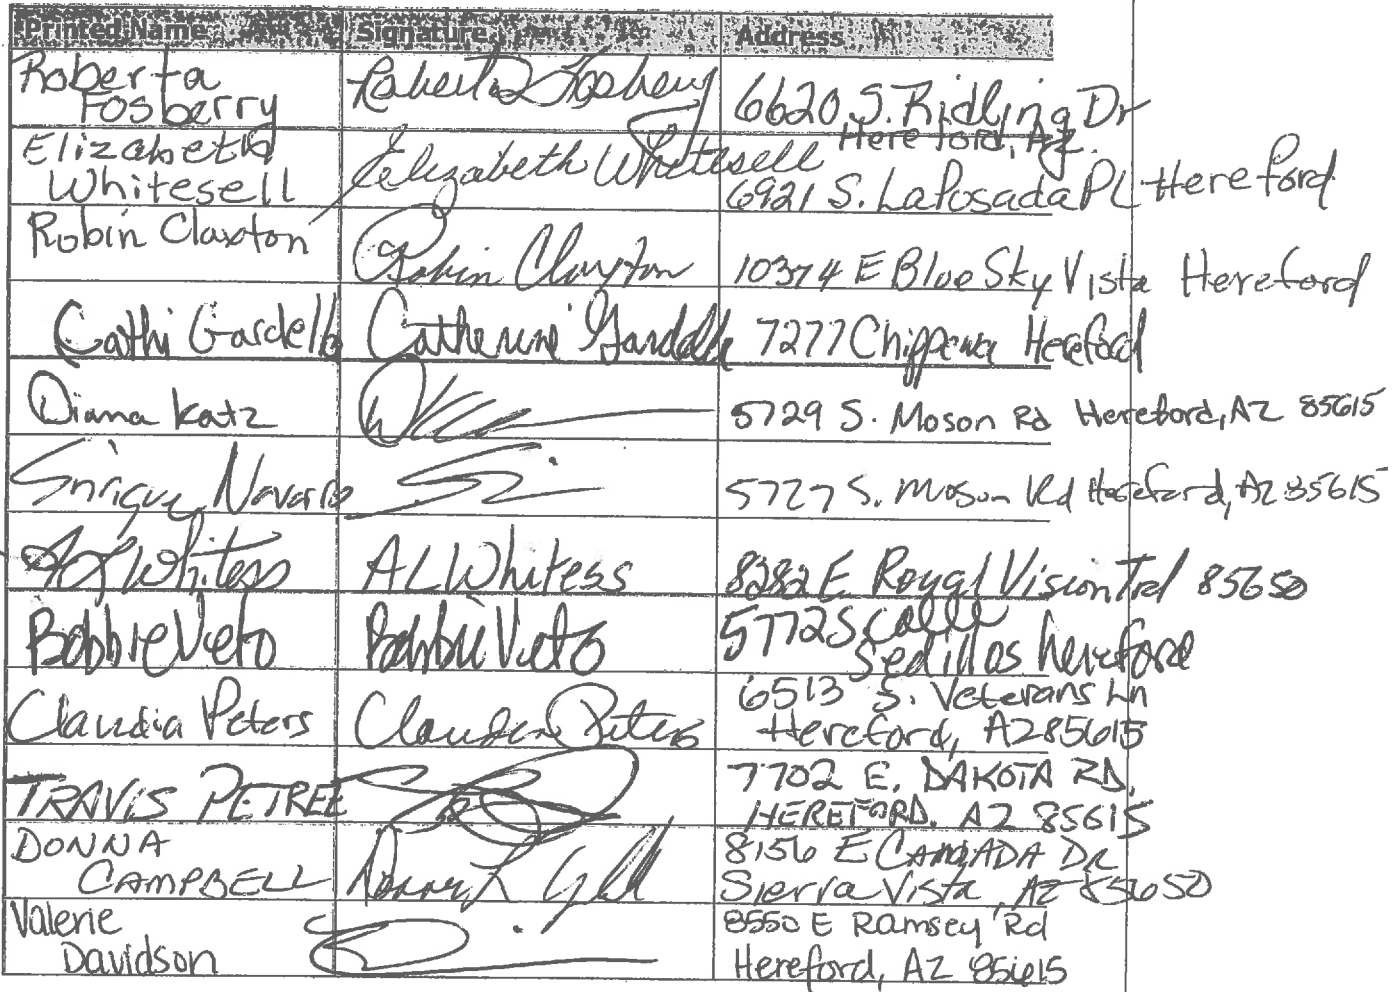 Printed Name Signature Address
Roberta
Fosberry
Roberta Fosberry
6620 S. Ridling Dr
Hereford, Az.
Elizabeth
Whitesell
Elizabeth Whitesell
6921 S. LaPosada PL Hereford
Robin Claxton
Robin Claxton
10374 E Blue Sky Vista Hereford
Cathi Gardella
Catherine Gardella
7277 Chippewa Hereford
Diana Katz
5729 S. Moson Rd Hereford, AZ 85615
Enrique Navarro
5727 S. Moson Rd Hereford, AZ 85615
AL Whitess
AL Whitess
8282 E Royal Vision Trl 85650
Bobbie Vieto
Bobbie Vieto
5772 S Calle
Sedillos hereford
Claudia Peters
Claudia Peters
6513 S. Veterans Ln
Hereford, AZ 85615
TRAVIS PETREE
7702 E. DAKOTA RD.
HEREFORD. AZ 85615
DONNA
CAMPBELL
Donna L
8156 E CANADA DR
Sierra Vista, AZ 85650
Valerie
Davidson
8550 E Ramsey Rd
Hereford, AZ 85615